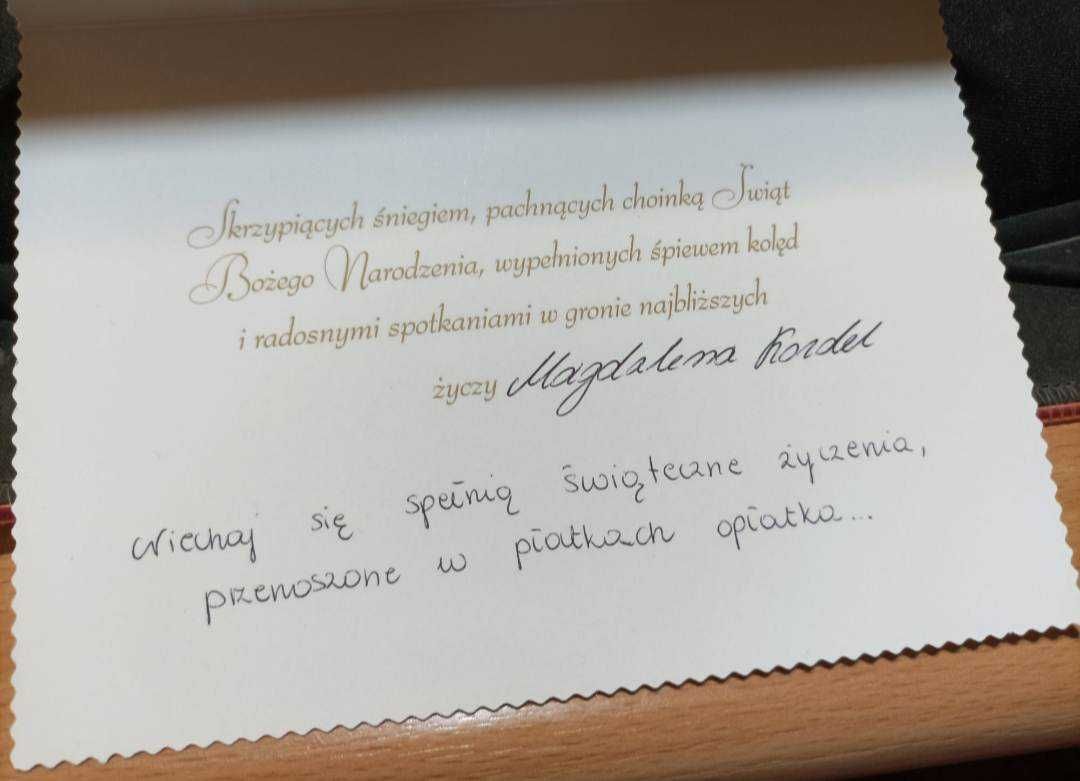 Skrzypiących śniegiem, pachnących choinką Świąt
Bożego Narodzenia, wypełnionych śpiewem kolęd
i radosnymi spotkaniami w gronie najbliższych
życzy Magdalena Kordel
Niechaj się spełnią świąteczne życzenia,
przenoszone w płatkach opłatka...